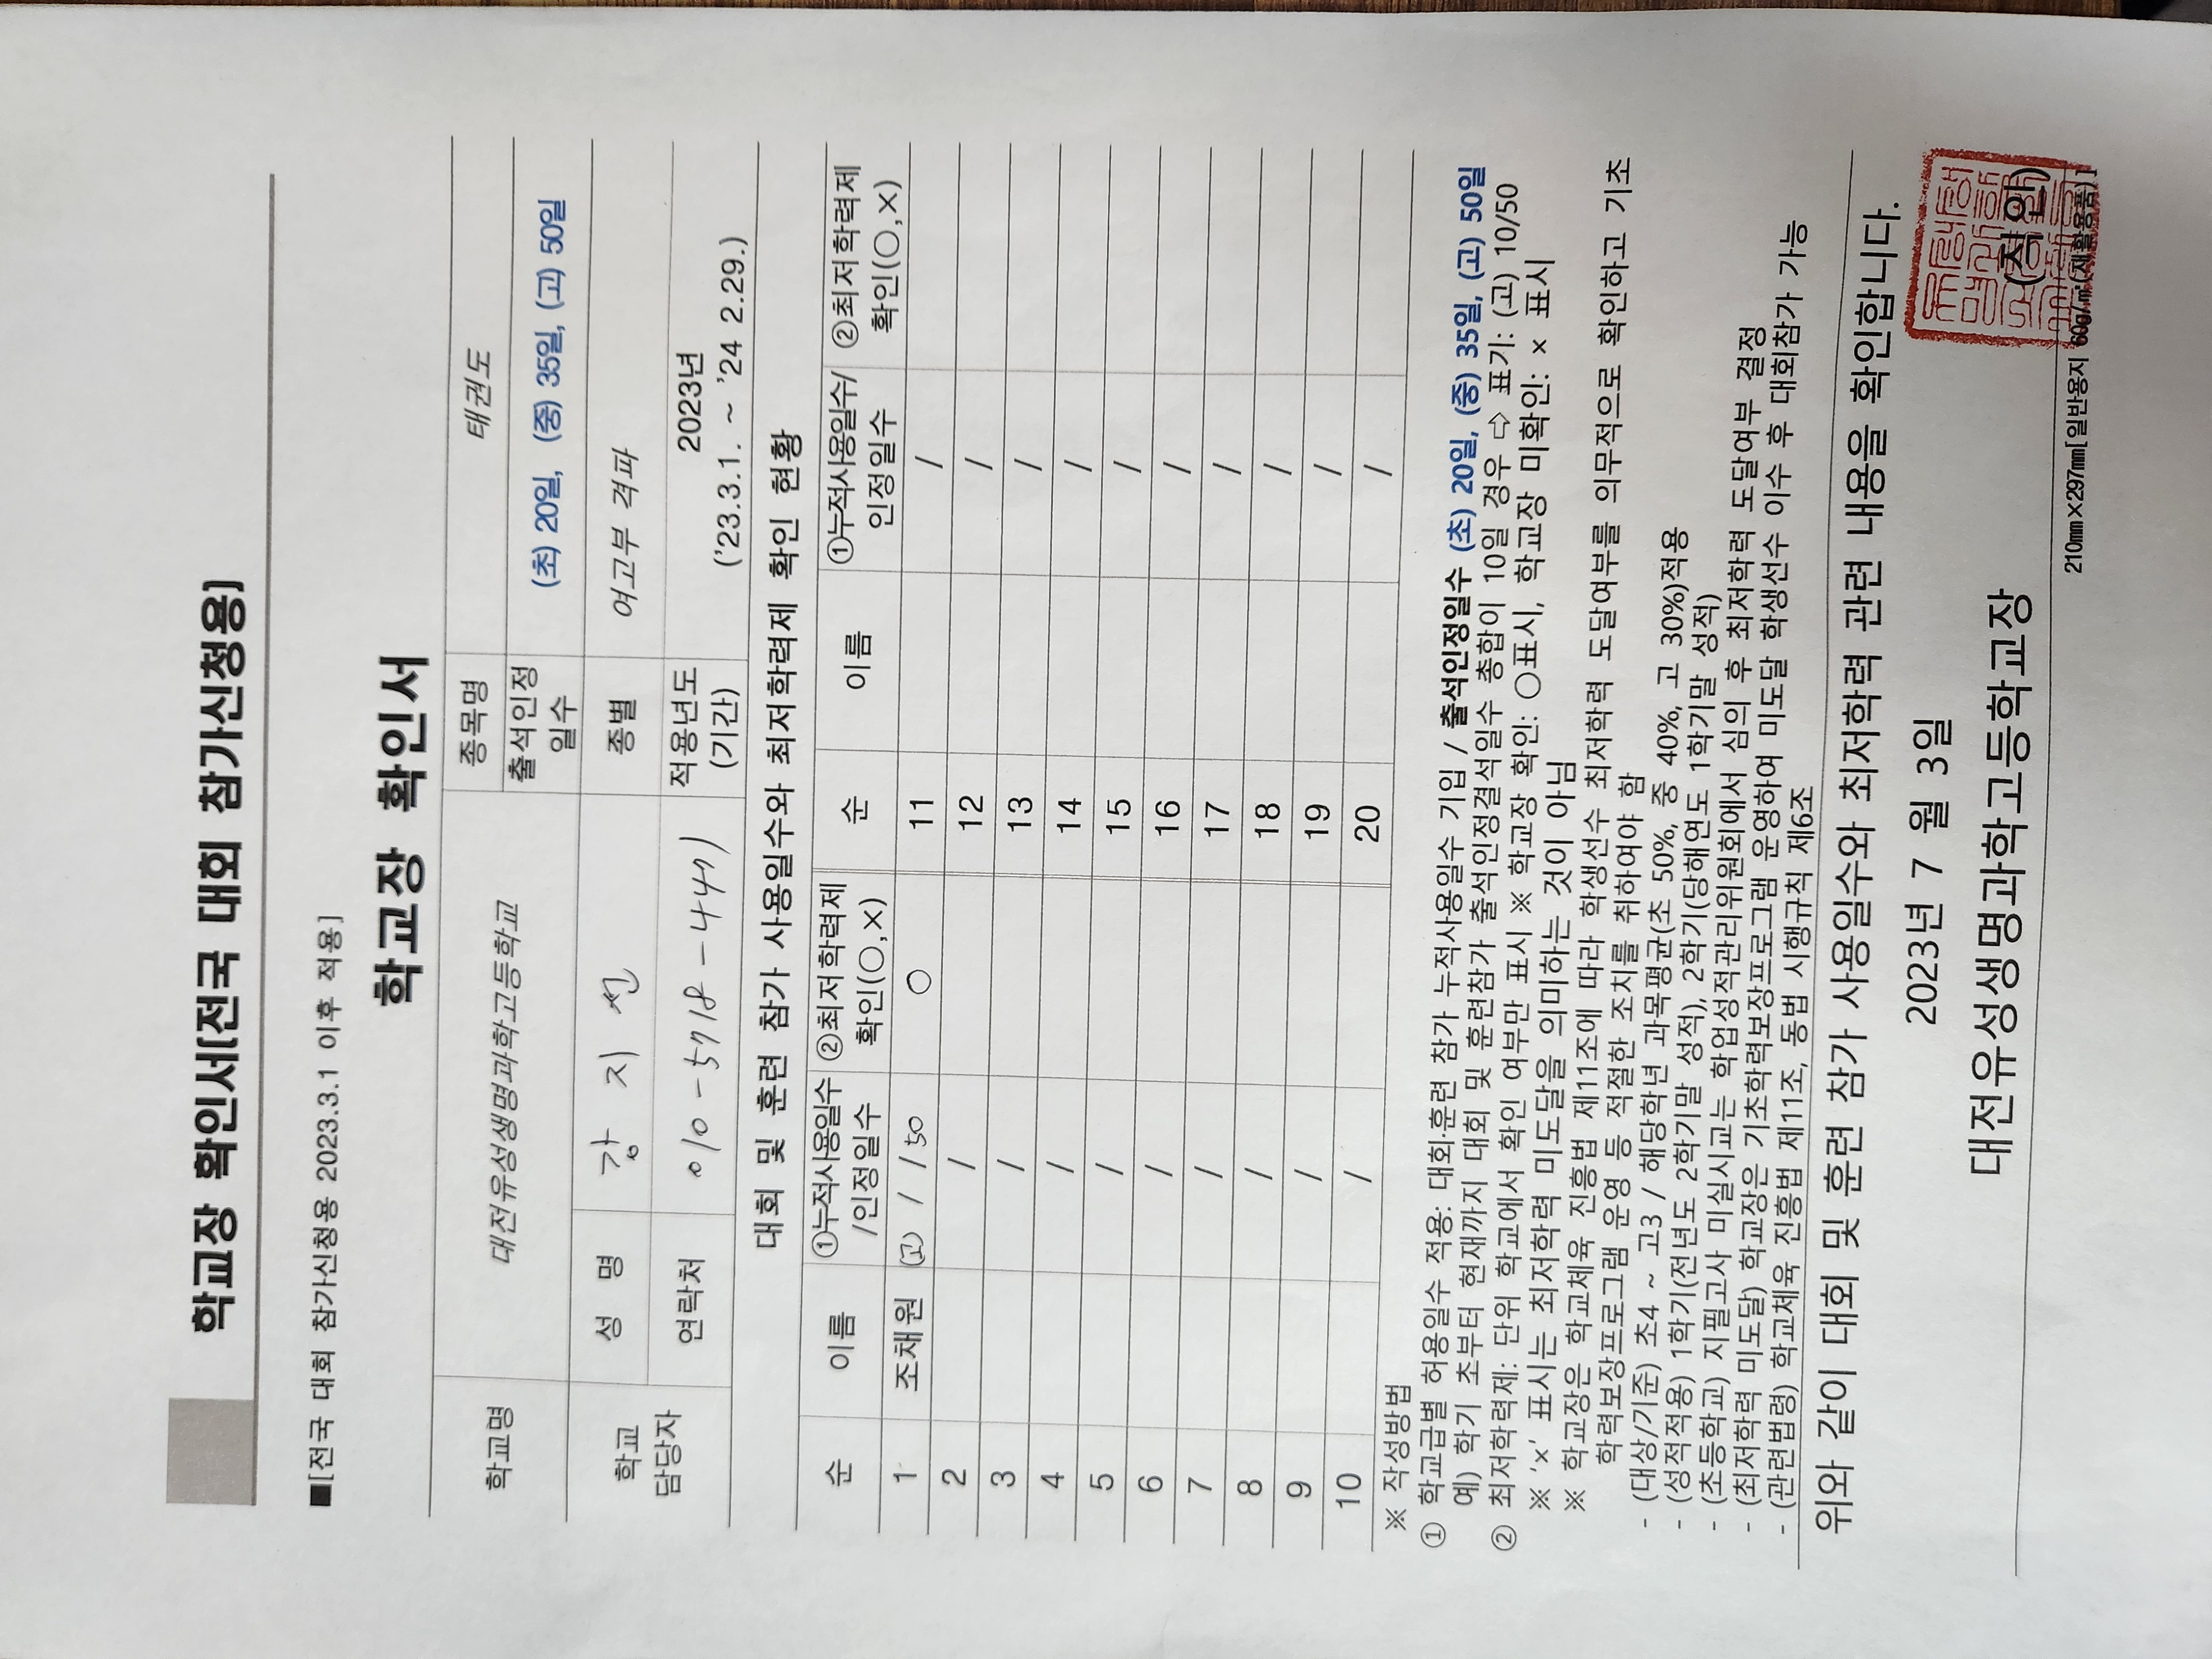 학교장 확인서[전국 대회 참가신청용]
■[전국 대회 참가신청용 2023.3.1 이후 적용]
학교장 확인서
학교명 대전유성생명과학고등학교 종목명 태권도
출석인정일수 (초) 20일, (중) 35일, (고) 50일
학교 담당자 성 명 강 지 선 종별 여고부 격파
연락처 적용년도 (기간) 2023년 ('23.3.1. ~ '24 2.29.)
대회 및 훈련 참가 사용일수와 최저학력제 확인 현황
순 이름 ①누적사용일수/인정일수 ②최저학력제 확인(○,×) 순 이름 ①누적사용일수/인정일수 ②최저학력제 확인(○,×)
1 조채원 (고) / / 50 ○ 11 /
2 / 12 /
3 / 13 /
4 / 14 /
5 / 15 /
6 / 16 /
7 / 17 /
8 / 18 /
9 / 19 /
10 / 20 /
※ 작성방법
① 학교급별 허용일수 적용: 대회·훈련 참가 누적사용일수 기입 / 출석인정일수 (초) 20일, (중) 35일, (고) 50일
예) 학기 초부터 현재까지 대회 및 훈련참가 출석인정결석일수 총합이 10일 경우 ⇨ 표기: (고) 10/50
② 최저학력제: 단위 학교에서 확인 여부만 표시 ※ 학교장 확인: ○표시, 학교장 미확인: × 표시
※ '×' 표시는 최저학력 미도달을 의미하는 것이 아님
※ 학교장은 학교체육 진흥법 제11조에 따라 학생선수 최저학력 도달여부를 의무적으로 확인하고 기초
학력보장프로그램 운영 등 적절한 조치를 취하여야 함
- (대상/기준) 초4 ~ 고3 / 해당학년 과목평균(초 50%, 중 40%, 고 30%)적용
- (성적적용) 1학기(전년도 2학기말 성적), 2학기(당해연도 1학기말 성적)
- (초등학교) 지필고사 미실시교는 학업성적관리위원회에서 심의 후 최저학력 도달여부 결정
- (최저학력 미도달) 학교장은 기초학력보장프로그램 운영하여 미도달 학생선수 이수 후 대회참가 가능
- (관련법령) 학교체육 진흥법 제11조, 동법 시행규칙 제6조
위와 같이 대회 및 훈련 참가 사용일수와 최저학력 관련 내용을 확인합니다.
2023년 7 월 3일
대전유성생명과학고등학교장 (직인)
210㎜×297㎜[일반용지 60g/㎡(재활용품)]